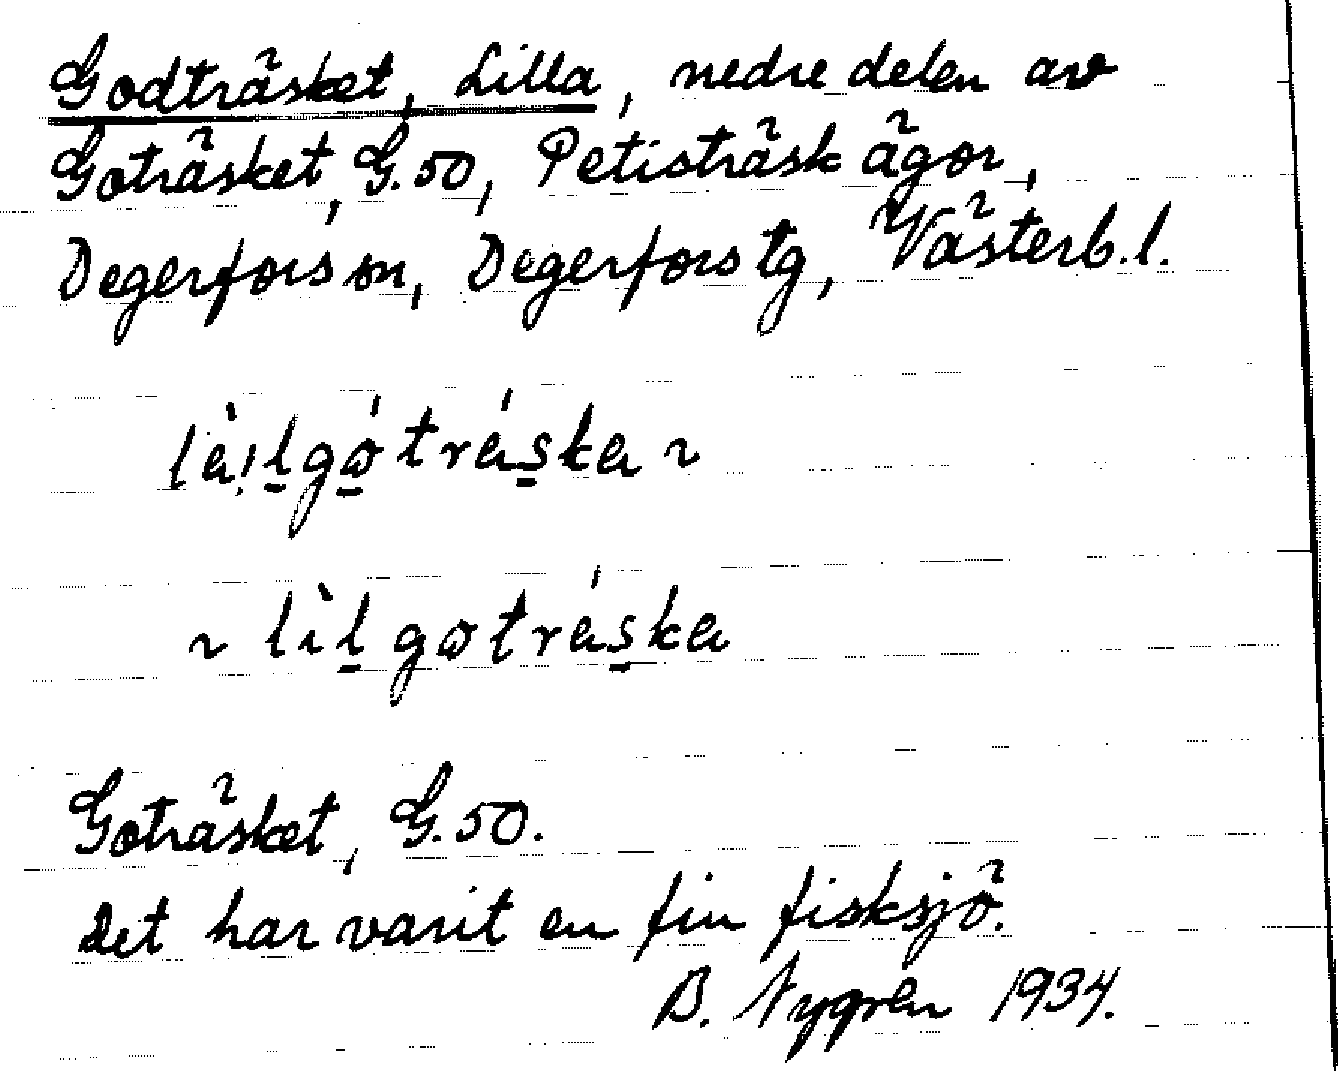 Godträsket, Lilla, nedre delen av
Goträsket, G.50, Petisträsk ägor,
Degerfors sn, Degerfors tg, Västerb.l.
~
~
Goträsket, G.50.
Det har varit en fin fisksjö.
B. Nygren 1934.